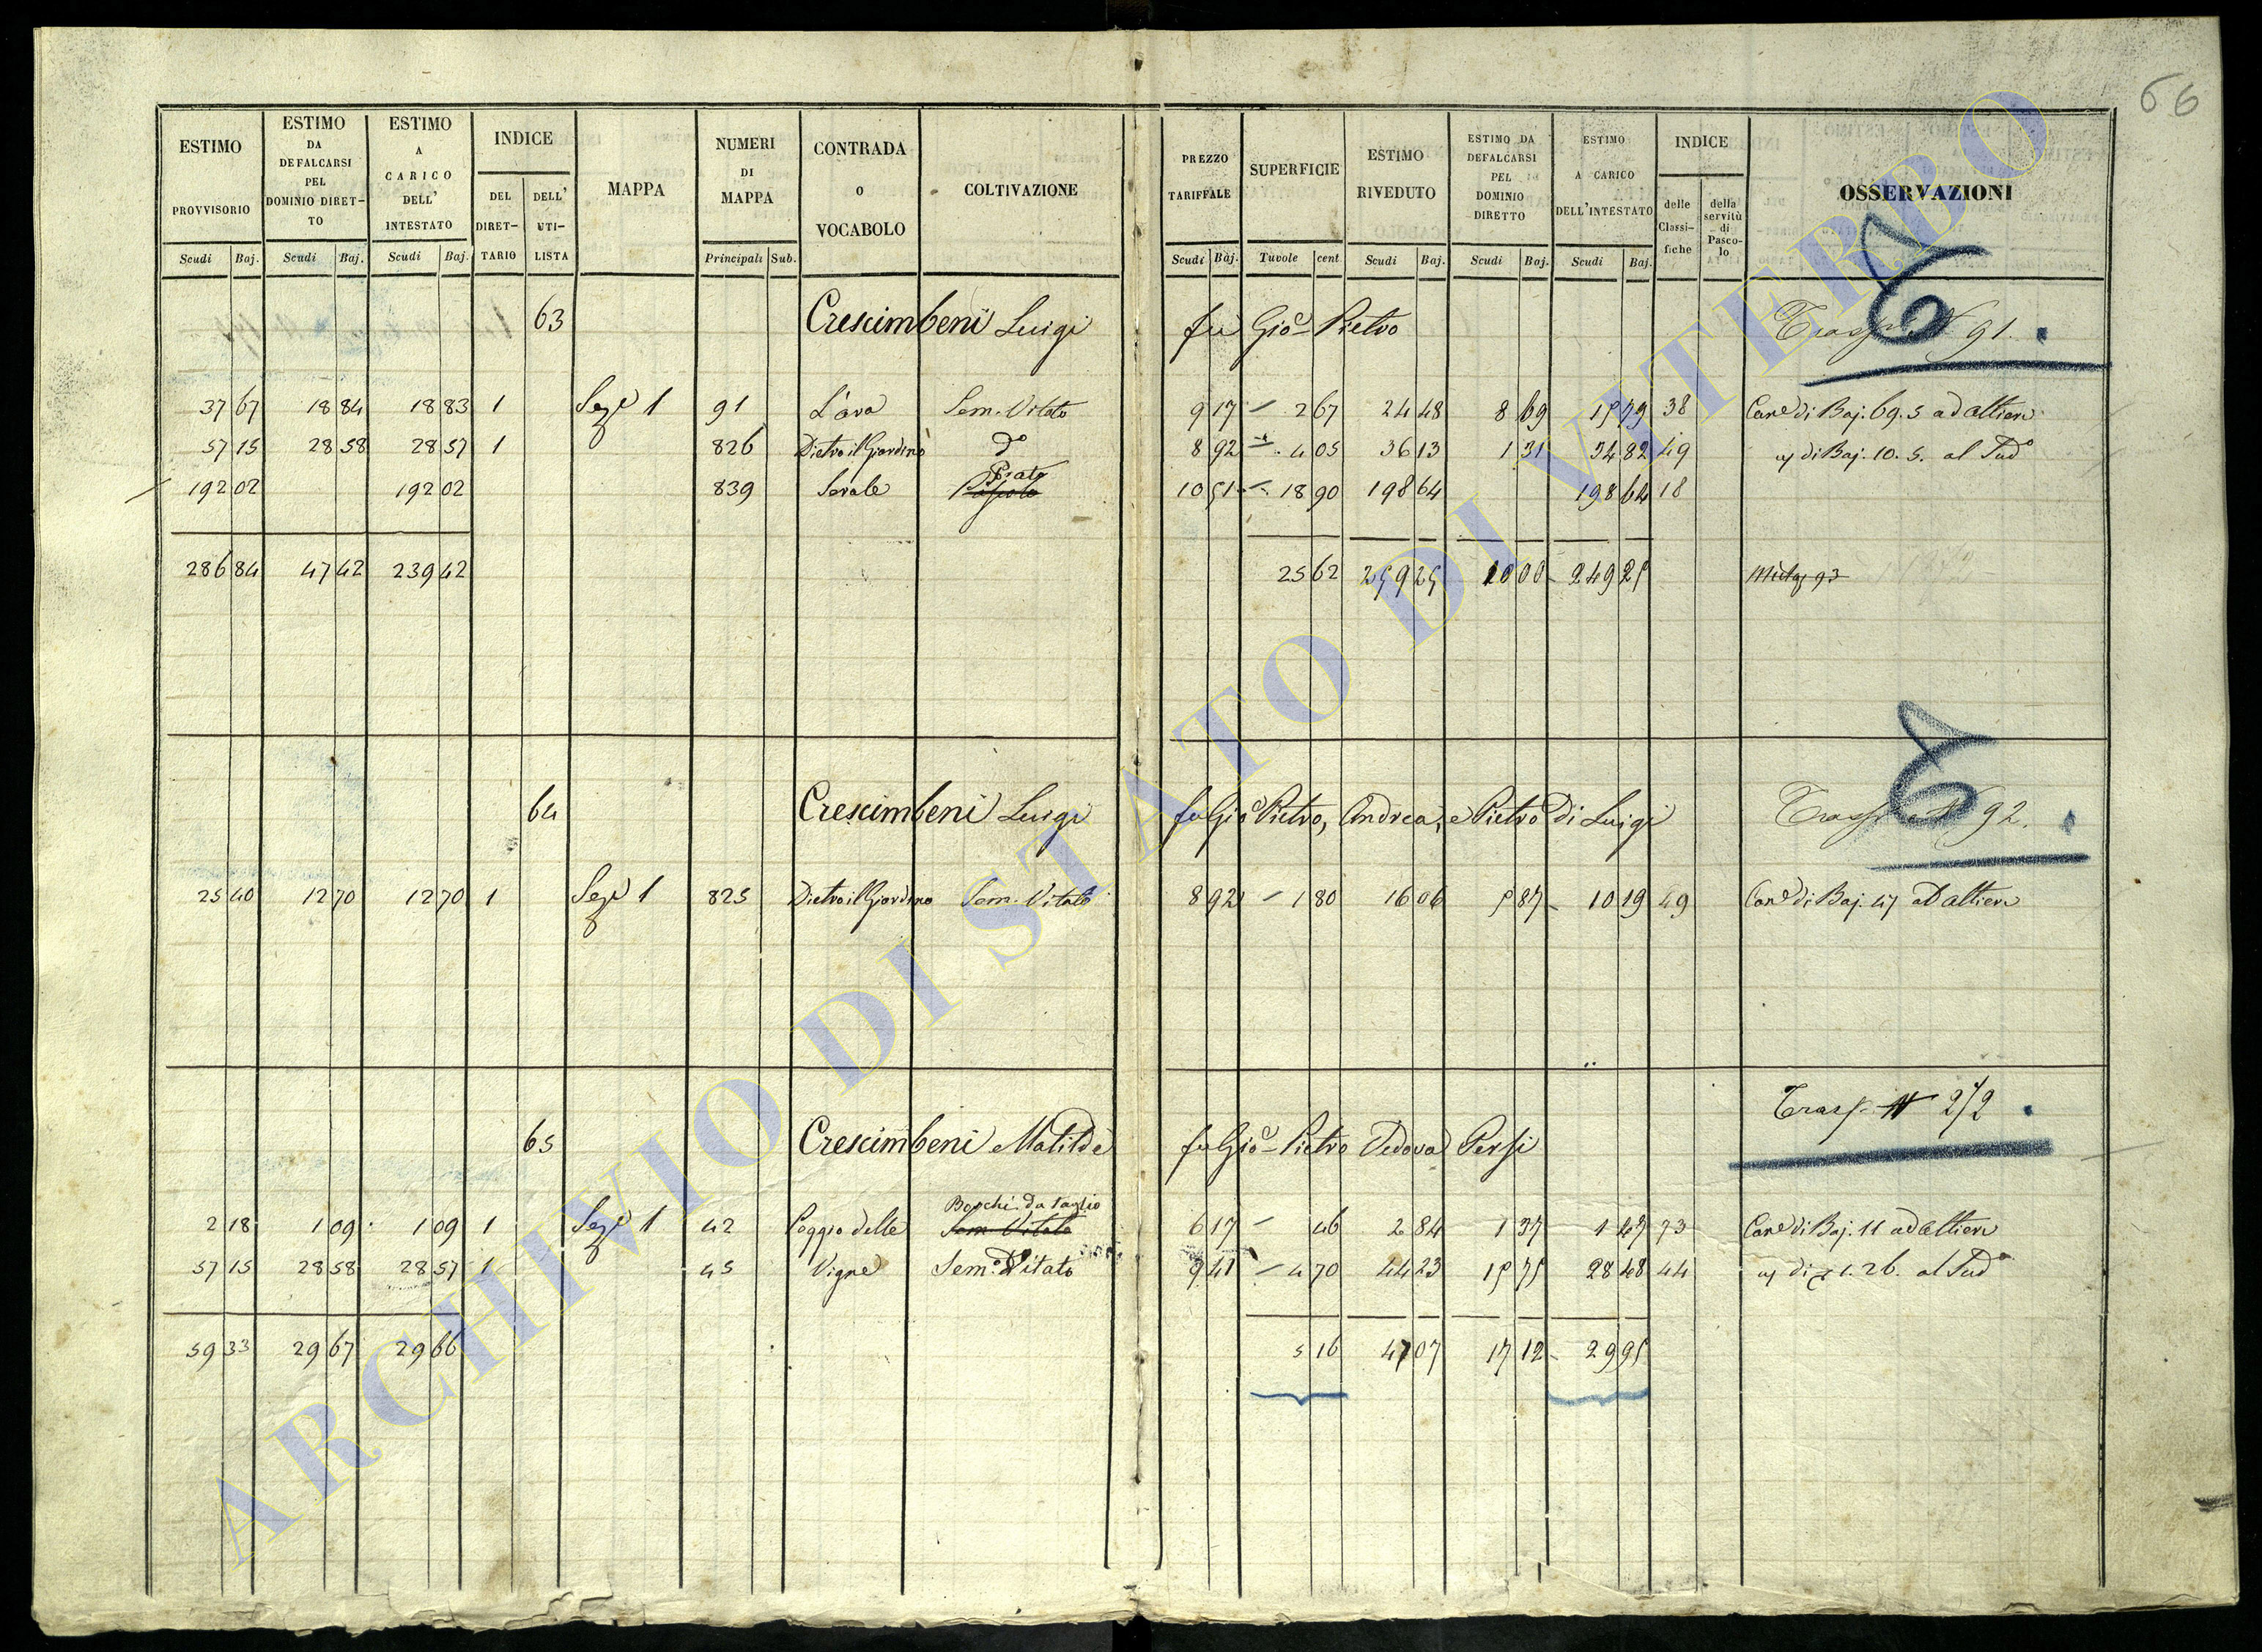 66
ESTIMO PROVVISORIO Scudi Baj.
ESTIMO DA DEFALCARSI PEL DOMINIO DIRET- TO Scudi Baj.
ESTIMO A CARICO DELL' INTESTATO Scudi Baj.
INDICE DEL DIRET- TARIO DELL' UTI- LISTA
MAPPA
NUMERI DI MAPPA Principali Sub.
CONTRADA O VOCABOLO
COLTIVAZIONE
PREZZO TARIFFALE Scudi Baj.
SUPERFICIE Tavole cent.
ESTIMO RIVEDUTO Scudi Baj.
ESTIMO DA DEFALCARSI PEL DOMINIO DIRETTO Scudi Baj.
ESTIMO A CARICO DELL'INTESTATO Scudi Baj.
INDICE delle Classi- fiche della servitù di Pasco- lo
OSSERVAZIONI
63 Crescimbeni Luigi fu Gio Pietro Trasp N 91.
37 67 18 84 18 83 1 Seze 1 91 L'ara Sem. Vitato 9 17 2 67 24 48 8 69 15 79 38 Cane di Baj. 69. 5 ad Altieri
57 15 28 58 28 57 1 826 Dietro il Giardino do 8 92 4 05 36 13 1 31 34 82 49 di Baj. 10. 5. al Sud
192 02 192 02 839 Serale Prato Pascolo 10 51 18 90 198 64 198 64 18
286 84 47 42 239 42 25 62 259 25 10 00 249 25
64 Crescimbeni Luigi fu Gio Pietro, Andrea, e Pietro di Luigi Trasp N 92.
25 40 12 70 12 70 1 Seze 1 825 Dietro il Giardino Sem. Vitato 8 92 1 80 16 06 5 87 10 19 49 Cane di Baj. 47 ad Altieri
Trasp N 272
65 Crescimbeni Matilde fu Gio Pietro Vedova Persi
2 18 1 09 1 09 1 Seze 1 42 Poggio delle Boschi da taglio Sem Vitato 6 17 46 2 84 1 37 1 47 73 Cane di Baj. 11 ad Altieri
57 15 28 58 28 57 1 45 Vigne Sem. Vitato 9 41 4 70 44 23 15 75 28 48 44 di 1. 26. al Sud
59 33 29 67 29 66 5 16 47 07 17 12 29 95
ARCHIVIO DI STATO DI VITERBO